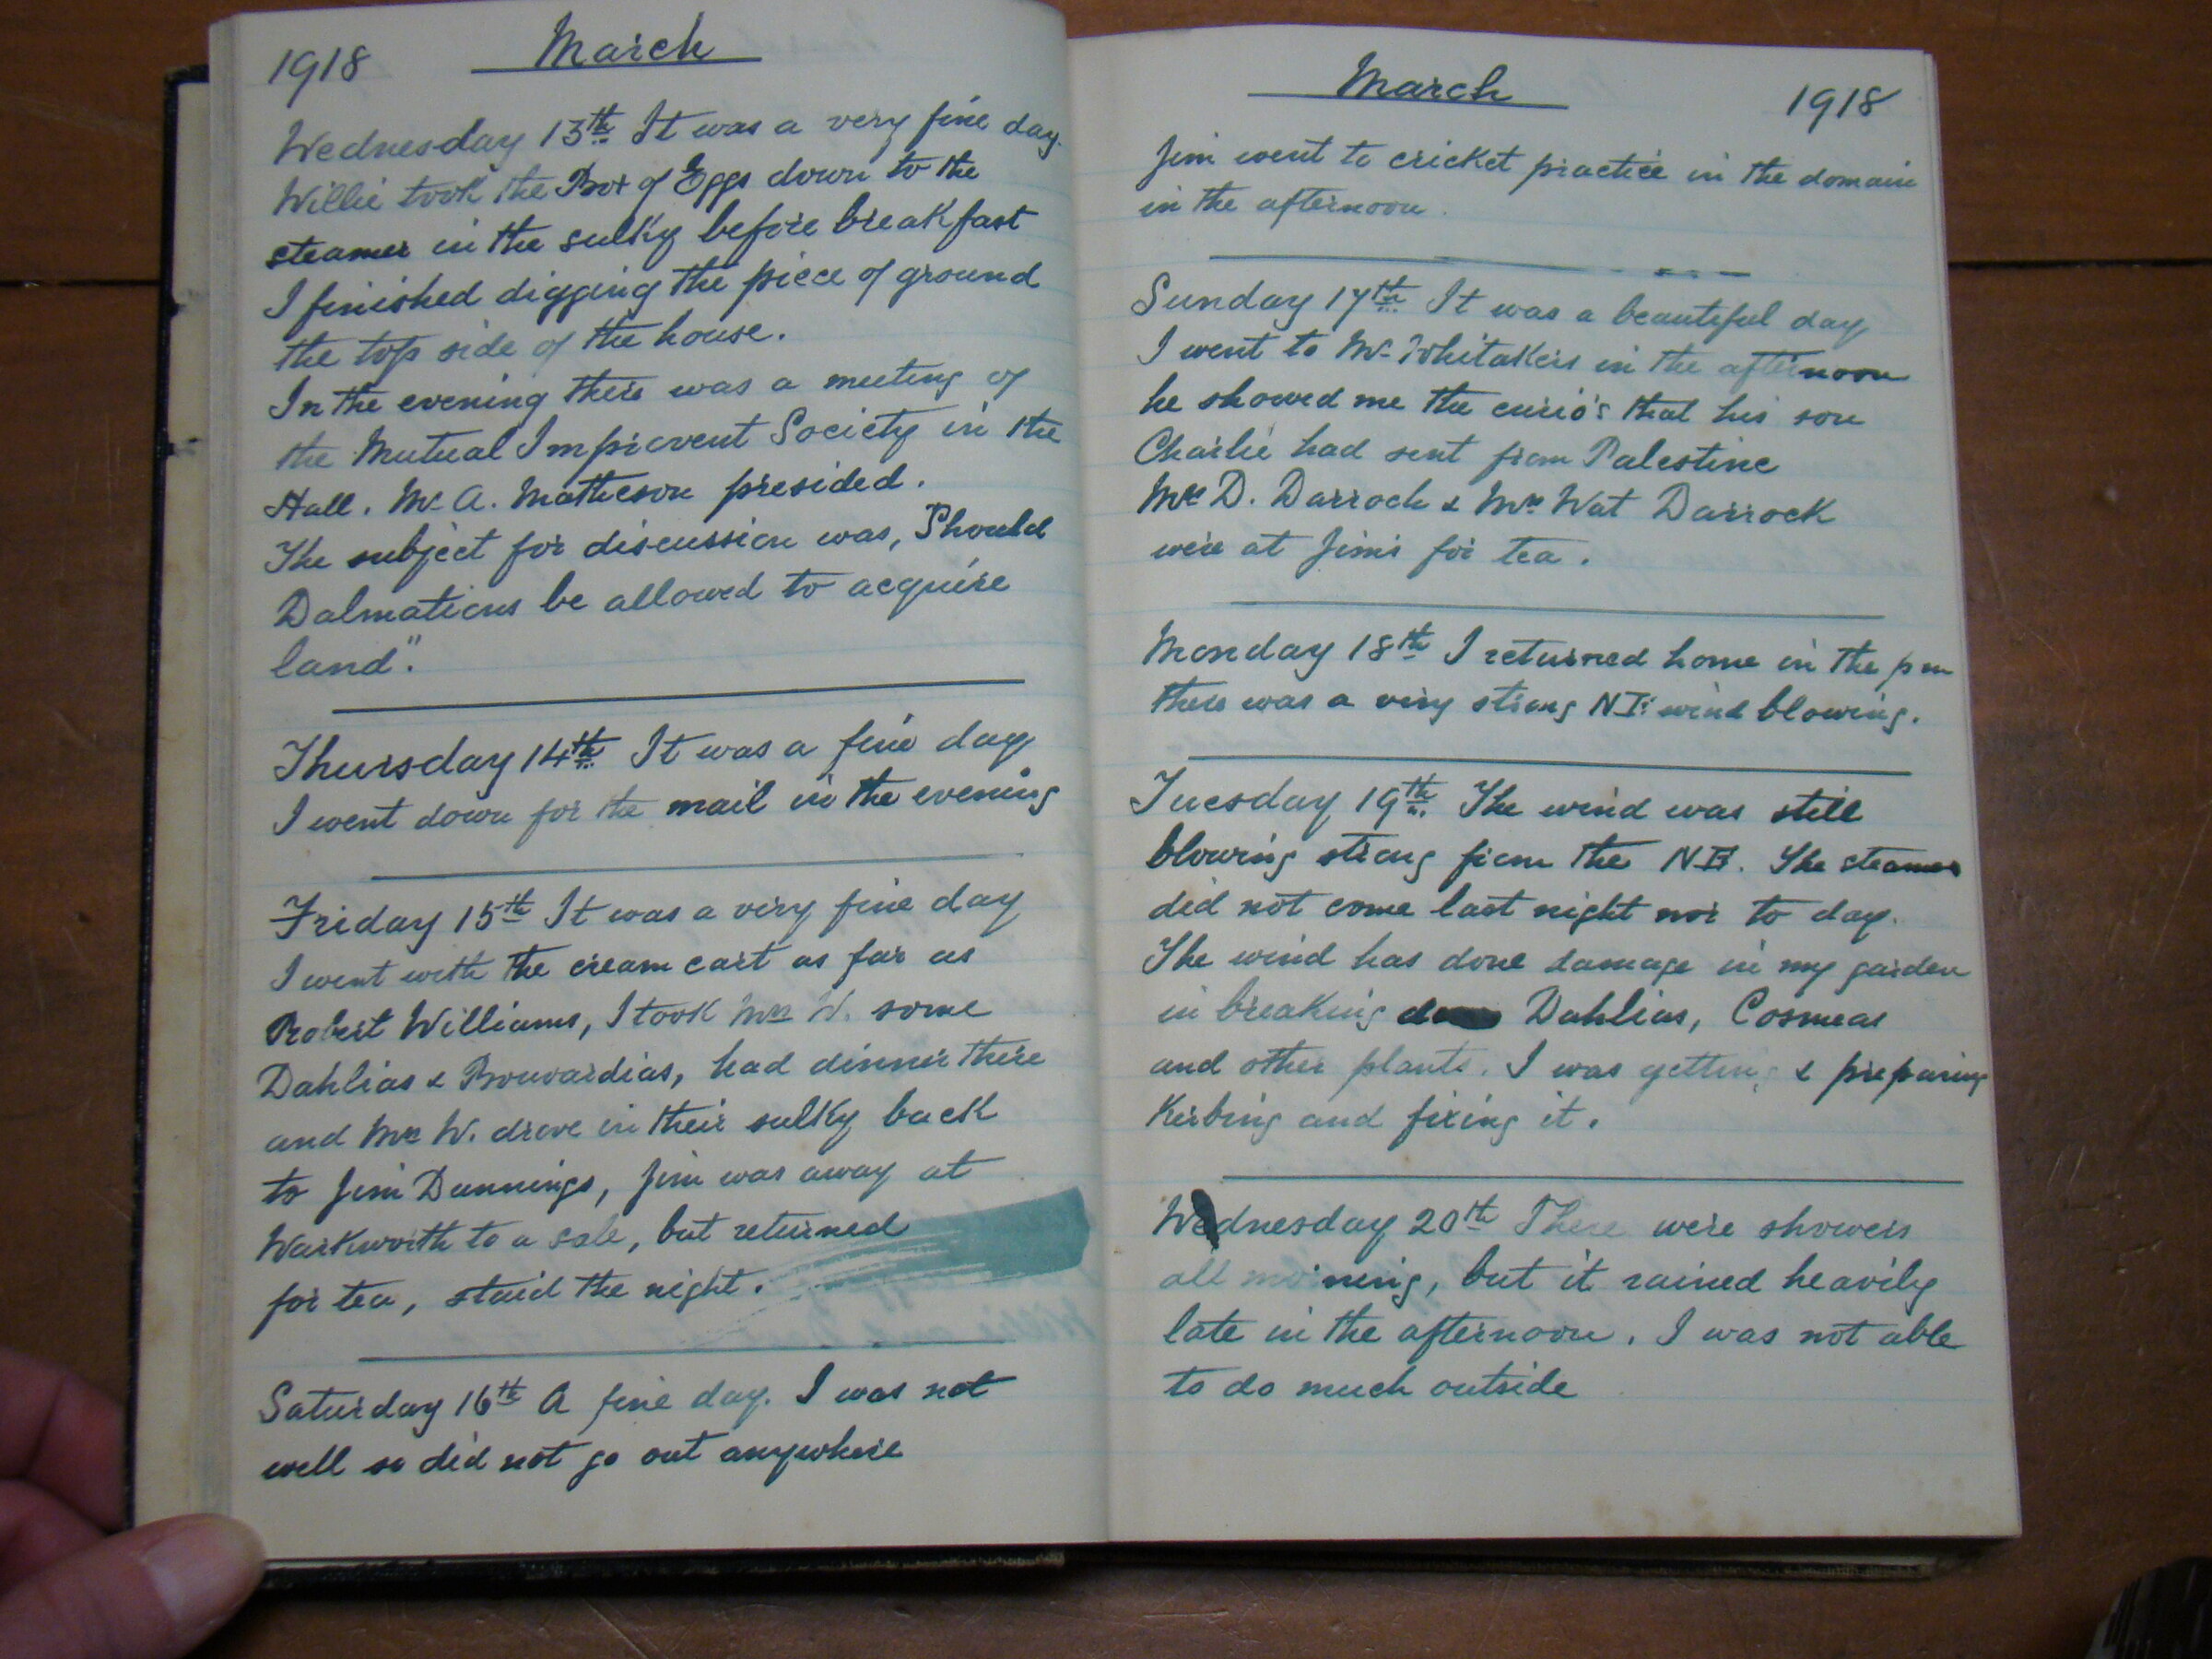 1918 March
Wednesday 13th It was a very fine day.
Willie took the Box of Eggs down to the
steamer in the sulky before breakfast
I finished digging the piece of ground
the top side of the house.
In the evening there was a meeting of
the Mutual Improvent Society in the
Hall. Mr A. Matheson presided.
The subject for discussion was, "Should
Dalmatians be allowed to acquire
land".
Thursday 14th It was a fine day
I went down for the mail in the evening
Friday 15th It was a very fine day
I went with the cream cart as far as
Robert Williams, I took Mrs W. some
Dahlias & Bouvardias, had dinner there
and Mrs W. drove in their sulky back
to Jim Dunnings, Jim was away at
Warkworth to a sale, but returned
for tea, staid the night.
Saturday 16th A fine day. I was not
well so did not go out anywhere
March 1918
Jim went to cricket practice in the domain
in the afternoon.
Sunday 17th It was a beautiful day
I went to Mr Whitakers in the afternoon
he showed me the curio's that his son
Charlie had sent from Palestine
Mr D. Darroch & Mrs Wat Darrock
were at Jims for tea.
Monday 18th I returned home in the pm
there was a very strong N E wind blowing.
Tuesday 19th. The wind was still
blowing strong from the N E. The steamer
did not come last night nor to day.
The wind has done damage in my garden
in breaking Dahlias, Cosmeas
and other plants. I was getting & preparing
Kerbing and fixing it.
Wednesday 20th There were showers
all morning, but it rained heavily
late in the afternoon. I was not able
to do much outside